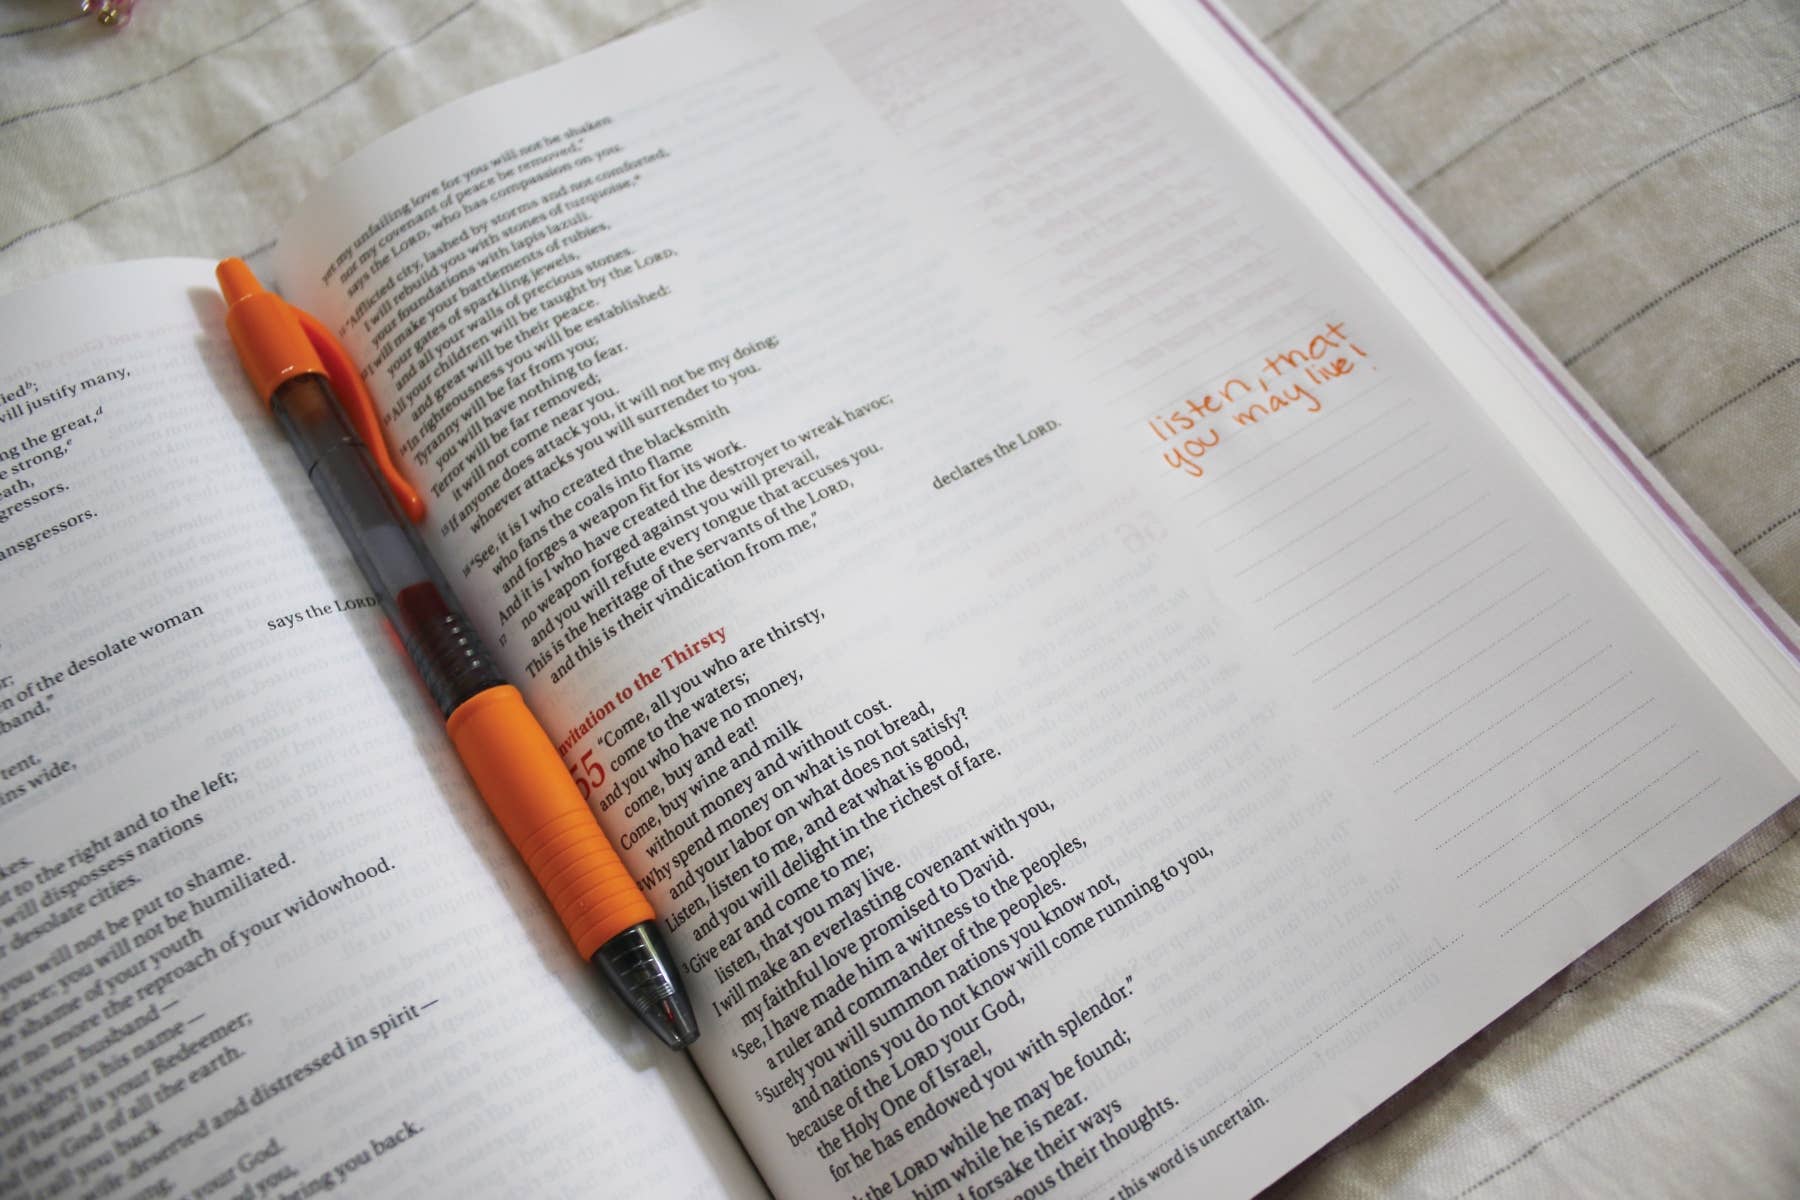 ied b;
vill justify many,
ng the great,d
e strong,e
eath,
gressors.
ansgressors.
says the LORD.
of the desolate woman
band,"
tent,
ins wide,
to the right and to the left;
will dispossess nations
desolate cities.
you will not be put to shame.
grace; you will not be humiliated.
shame of your youth
no more the reproach of your widowhood.
is your husband—
Almighty is his name—
of Israel is your Redeemer;
the God of all the earth.
call you back
wife deserted and distressed in spirit—
your God.
you,
bring you back.
yet my unfailing love for you will not be shaken
nor my covenant of peace be removed,"
says the LORD, who has compassion on you.
"Afflicted city, lashed by storms and not comforted,
I will rebuild you with stones of turquoise,a
your foundations with lapis lazuli.
I will make your battlements of rubies,
your gates of sparkling jewels,
and all your walls of precious stones.
All your children will be taught by the LORD,
and great will be their peace.
In righteousness you will be established:
Tyranny will be far from you;
you will have nothing to fear.
Terror will be far removed;
it will not come near you.
15 If anyone does attack you, it will not be my doing;
whoever attacks you will surrender to you.
16 "See, it is I who created the blacksmith
who fans the coals into flame
and forges a weapon fit for its work.
And it is I who have created the destroyer to wreak havoc;
17 no weapon forged against you will prevail,
and you will refute every tongue that accuses you.
This is the heritage of the servants of the LORD,
and this is their vindication from me,"
declares the LORD.
nvitation to the Thirsty
55 "Come, all you who are thirsty,
come to the waters;
and you who have no money,
come, buy and eat!
Come, buy wine and milk
without money and without cost.
Why spend money on what is not bread,
and your labor on what does not satisfy?
Listen, listen to me, and eat what is good,
and you will delight in the richest of fare.
3 Give ear and come to me;
listen, that you may live.
I will make an everlasting covenant with you,
my faithful love promised to David.
4 See, I have made him a witness to the peoples,
a ruler and commander of the peoples.
5 Surely you will summon nations you know not,
and nations you do not know will come running to you,
because of the LORD your God,
the Holy One of Israel,
for he has endowed you with splendor."
the LORD while he may be found;
him while he is near.
forsake their ways
their thoughts.
this word is uncertain.
listen, that
you may live!